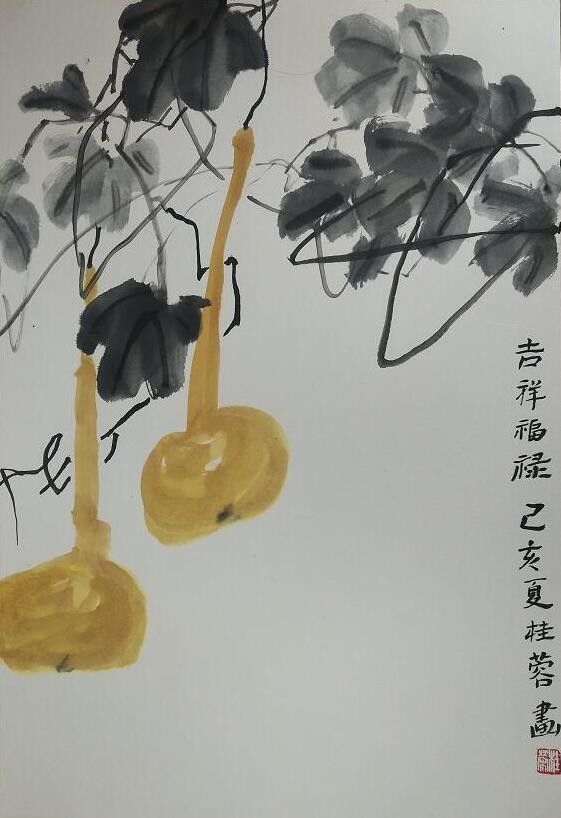 吉祥福禄 己亥夏桂蓉畫